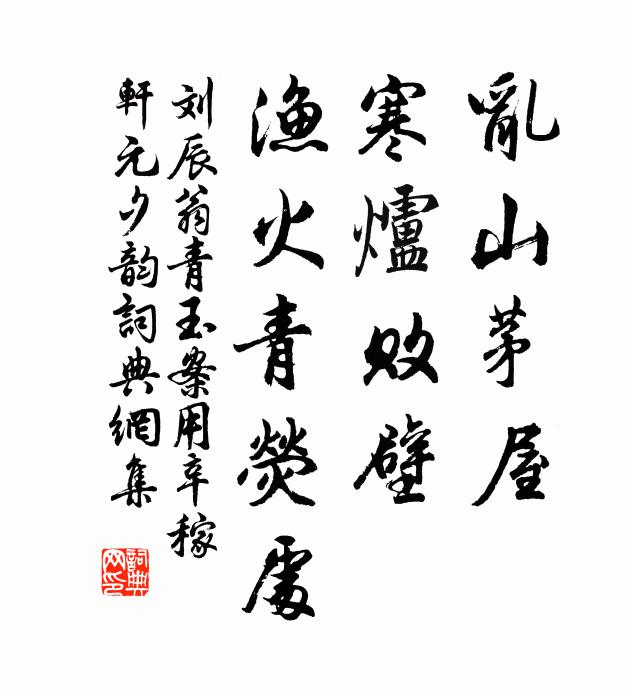 亂山茅屋
寒爐敗壁
漁火青熒處
刘辰翁青玉案用辛稼
軒元夕韵詞典網集
詞典
网印